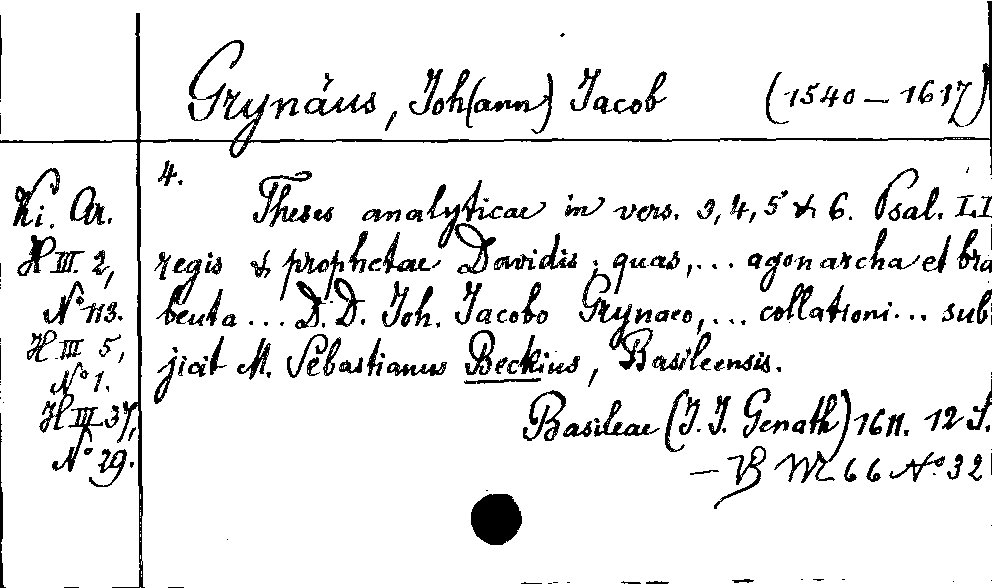 Grynäus, Joh(ann) Jacob (1540 – 1617)
4.
Ki. Ar.
H III. 2,
No 113.
H III 5,
No 1.
H III 37,
No 29.
Theses analyticae in vers. 3, 4, 5 & 6. Psal. LI
regis & prophetae Davidis; quas, ... agonarcha et bra
beuta ... D. D. Joh. Jacobo Grynaeo, ... collationi ... sub
jicit M. Sebastianus Beckius, Basileensis.
Basileae (J. J. Genath) 1611. 12 S.
– VB M 66 No 32